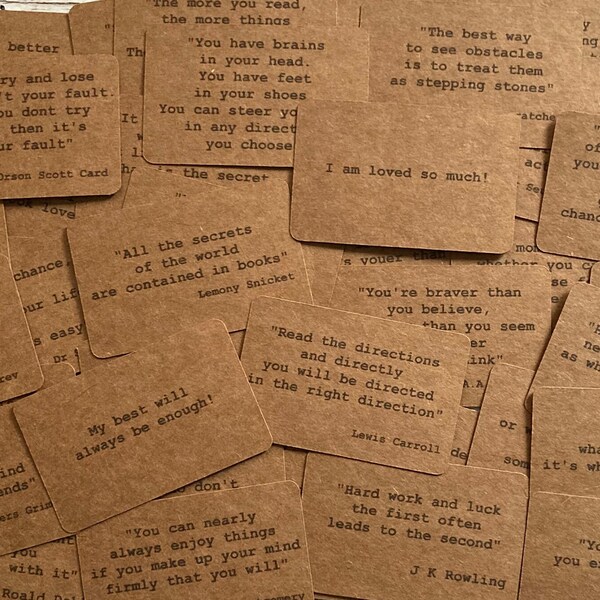 The more you read,
the more things
better
ry and lose
't your fault.
ou dont try
then it's
ur fault"
Orson Scott Card
"You have brains
in your head.
You have feet
in your shoes
You can steer yo
in any direct
you choose
"The best way
to see obstacles
is to treat them
as stepping stones"
I am loved so much!
the secret
of love
"All the secrets
of the world
are contained in books"
Lemony Snicket
chance,
ur lif
s easy
Dr
"You're braver than
you believe,
than you seem
er
ink"
A.A.
whether you c
"Read the directions
and directly
you will be directed
in the right direction"
Lewis Carroll
My best will
always be enough!
"Hard work and luck
the first often
leads to the second"
J K Rowling
don't
"You can nearly
always enjoy things
if you make up your mind
firmly that you will"
ind
ends"
ers Grim
you
with it"
Roald Da
or w
som
wha
it's wh
"Yo
you e
of
you
chanc
ne
as wh